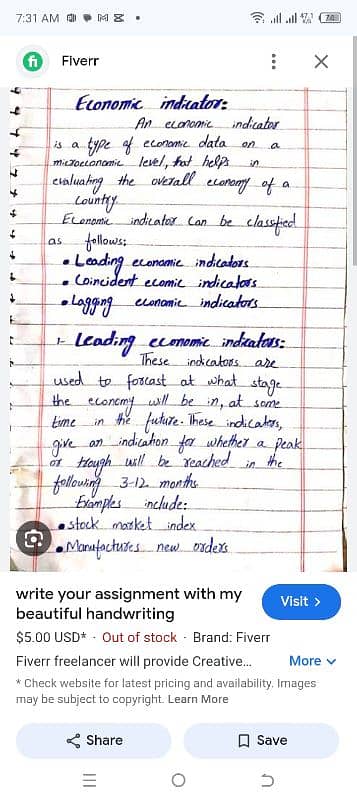 7:31 AM
74
Fiverr
Economic indicator:
An economic indicator
is a type of economic data on a
microeconomic level, that helps in
evaluating the overall economy of a
country.
Economic indicator can be classfied
as follows:
• Leading economic indicators
• Coincident ecomic indicators
• Lagging economic indicators
1- Leading economic indicators:
These indicators are
used to forcast at what stage
the economy will be in, at some
time in the future. These indicators,
give an indication for whether a peak
or trough will be reached in the
following 3-12 months.
Examples include:
• stock market index
• Manufactures new orders
write your assignment with my
beautiful handwriting
Visit >
$5.00 USD* · Out of stock · Brand: Fiverr
Fiverr freelancer will provide Creative...
More
* Check website for latest pricing and availability. Images
may be subject to copyright. Learn More
Share
Save